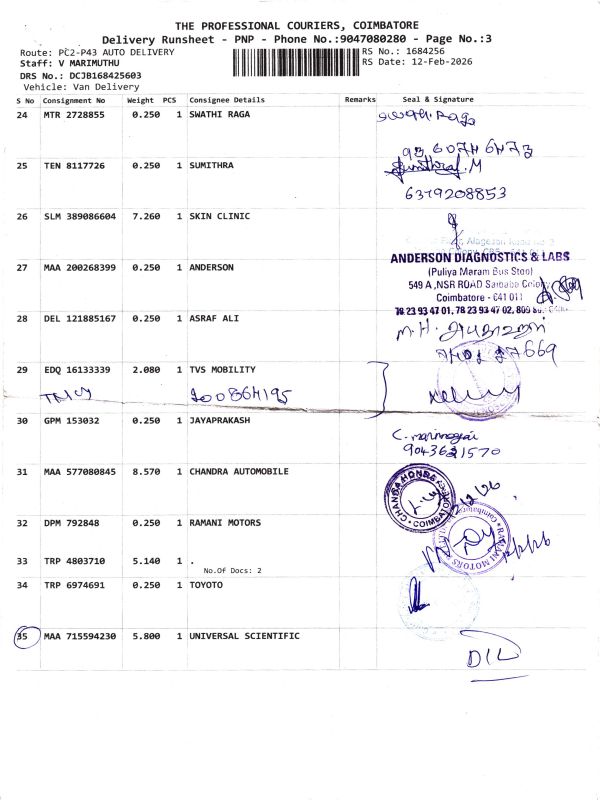 THE PROFESSIONAL COURIERS, COIMBATORE
Delivery Runsheet - PNP - Phone No.:9047080280 - Page No.:3
Route: PC2-P43 AUTO DELIVERY
RS No.: 1684256
Staff: V MARIMUTHU
RS Date: 12-Feb-2026
DRS No.: DCJB168425603
Vehicle: Van Delivery
S No Consignment No Weight PCS Consignee Details Remarks Seal & Signature
24 MTR 2728855 0.250 1 SWATHI RAGA
25 TEN 8117726 0.250 1 SUMITHRA
6379208853
26 SLM 389086604 7.260 1 SKIN CLINIC
ANDERSON DIAGNOSTICS & LABS
(Puliya Maram Bus Stop)
27 MAA 200268399 0.250 1 ANDERSON
549 A ,NSR ROAD Saibaba Colony
Coimbatore - 641 011
78 23 93 47 01, 78 23 93 47 02,
28 DEL 121885167 0.250 1 ASRAF ALI
29 EDQ 16133339 2.080 1 TVS MOBILITY
200864195
30 GPM 153032 0.250 1 JAYAPRAKASH
31 MAA 577080845 8.570 1 CHANDRA AUTOMOBILE
CHANDRA HONDA
COIMBATORE
32 DPM 792848 0.250 1 RAMANI MOTORS
RAMANI MOTORS
33 TRP 4803710 5.140 1 .
No.Of Docs: 2
34 TRP 6974691 0.250 1 TOYOTO
35 MAA 715594230 5.800 1 UNIVERSAL SCIENTIFIC
D/L